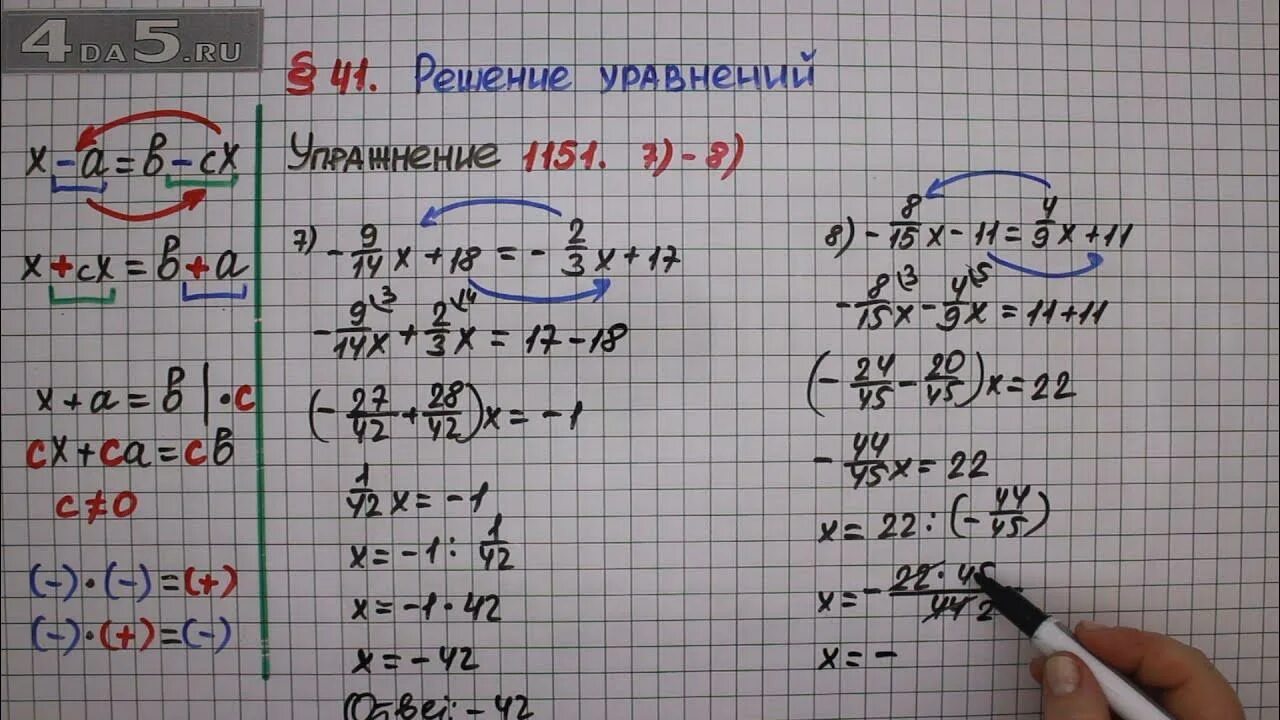 4DA5.RU
§ 41. Решение уравнений
x - a = в - cx
x + cx = в + a
x + a = в | · c
cx + ca = cв
c ≠ 0
(-) · (-) = (+)
(-) · (+) = (-)
Упражнение 1151. 7) - 8)
7) - 9/14 x + 18 = - 2/3 x + 17
- 9/14 \3 x + 2/3 \14 x = 17 - 18
(- 27/42 + 28/42) x = -1
1/42 x = -1
x = -1 : 1/42
x = -1 · 42
x = -42
Ответ: -42
8) - 8/15 x - 11 = 4/9 x + 11
- 8/15 \3 x - 4/9 \5 x = 11 + 11
(- 24/45 - 20/45) x = 22
- 44/45 x = 22
x = 22 : (- 44/45)
x = - 22 · 45 / 44 2
x = -